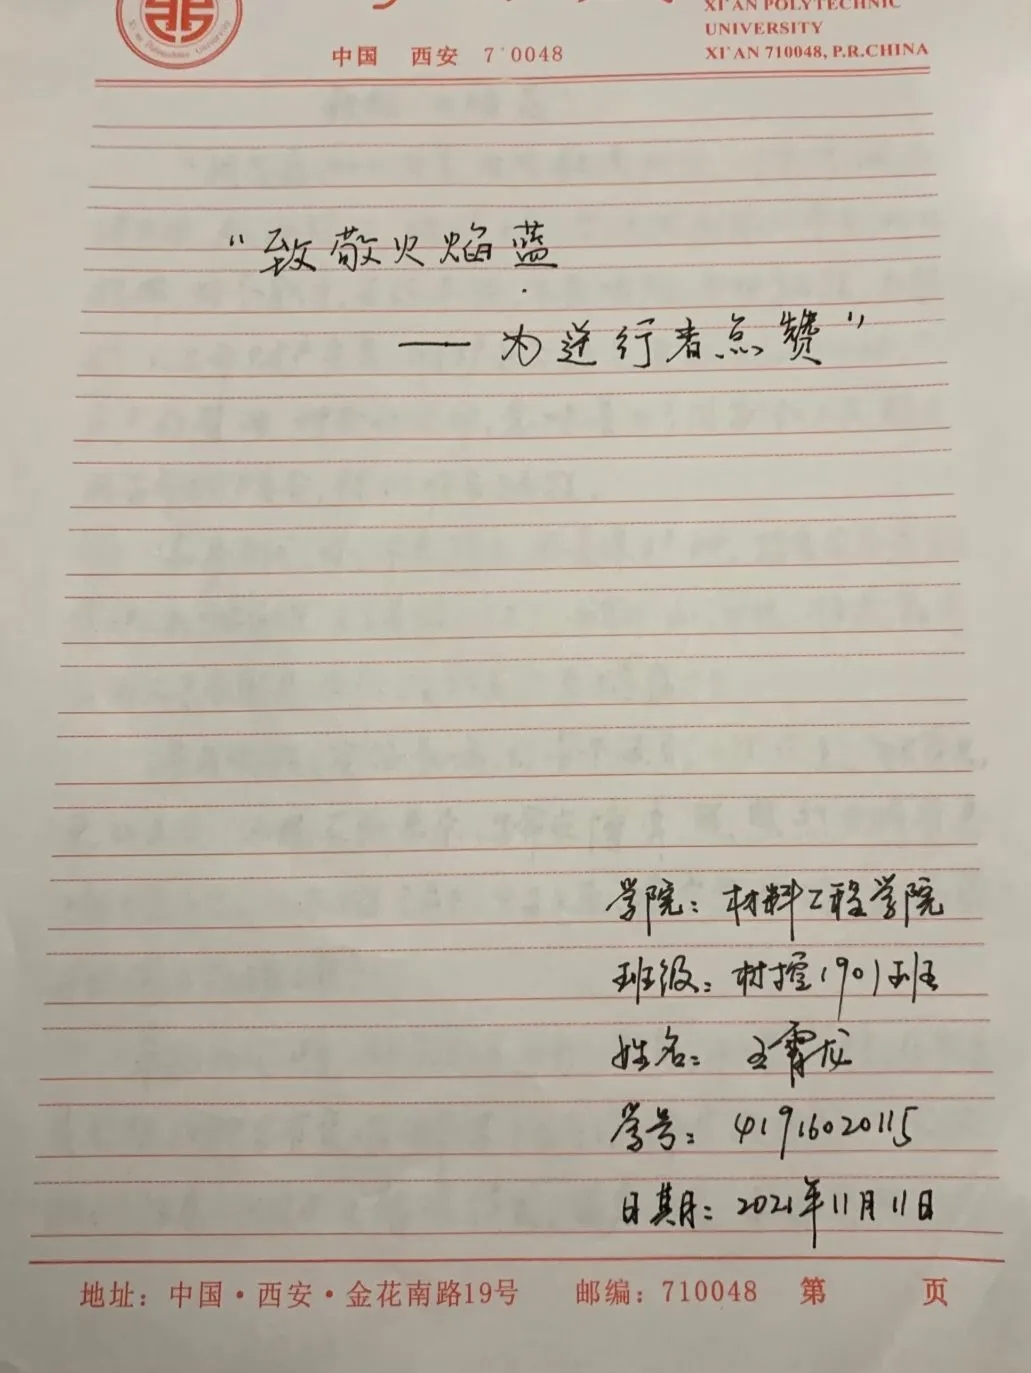 XI'AN POLYTECHNIC
UNIVERSITY
中国 西安 7 0048
XI'AN 710048, P.R.CHINA
Xi'an Polytechnic University
“致敬火焰蓝
——为逆行者点赞”
学院：材料工程学院
班级：材控1901班
姓名：王霄龙
学号：41916020115
日期：2021年11月11日
地址：中国·西安·金花南路19号 邮编：710048 第 页